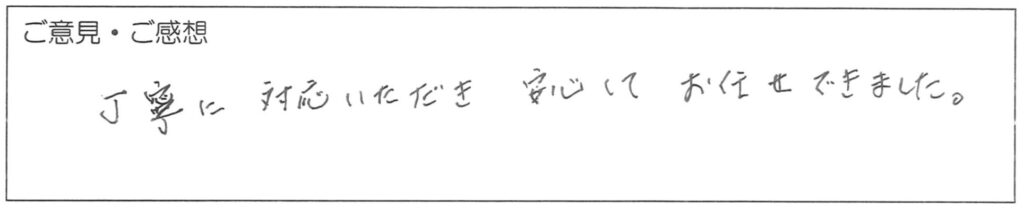 ご意見・ご感想
丁寧に 対応いただき 安心して お任せできました。